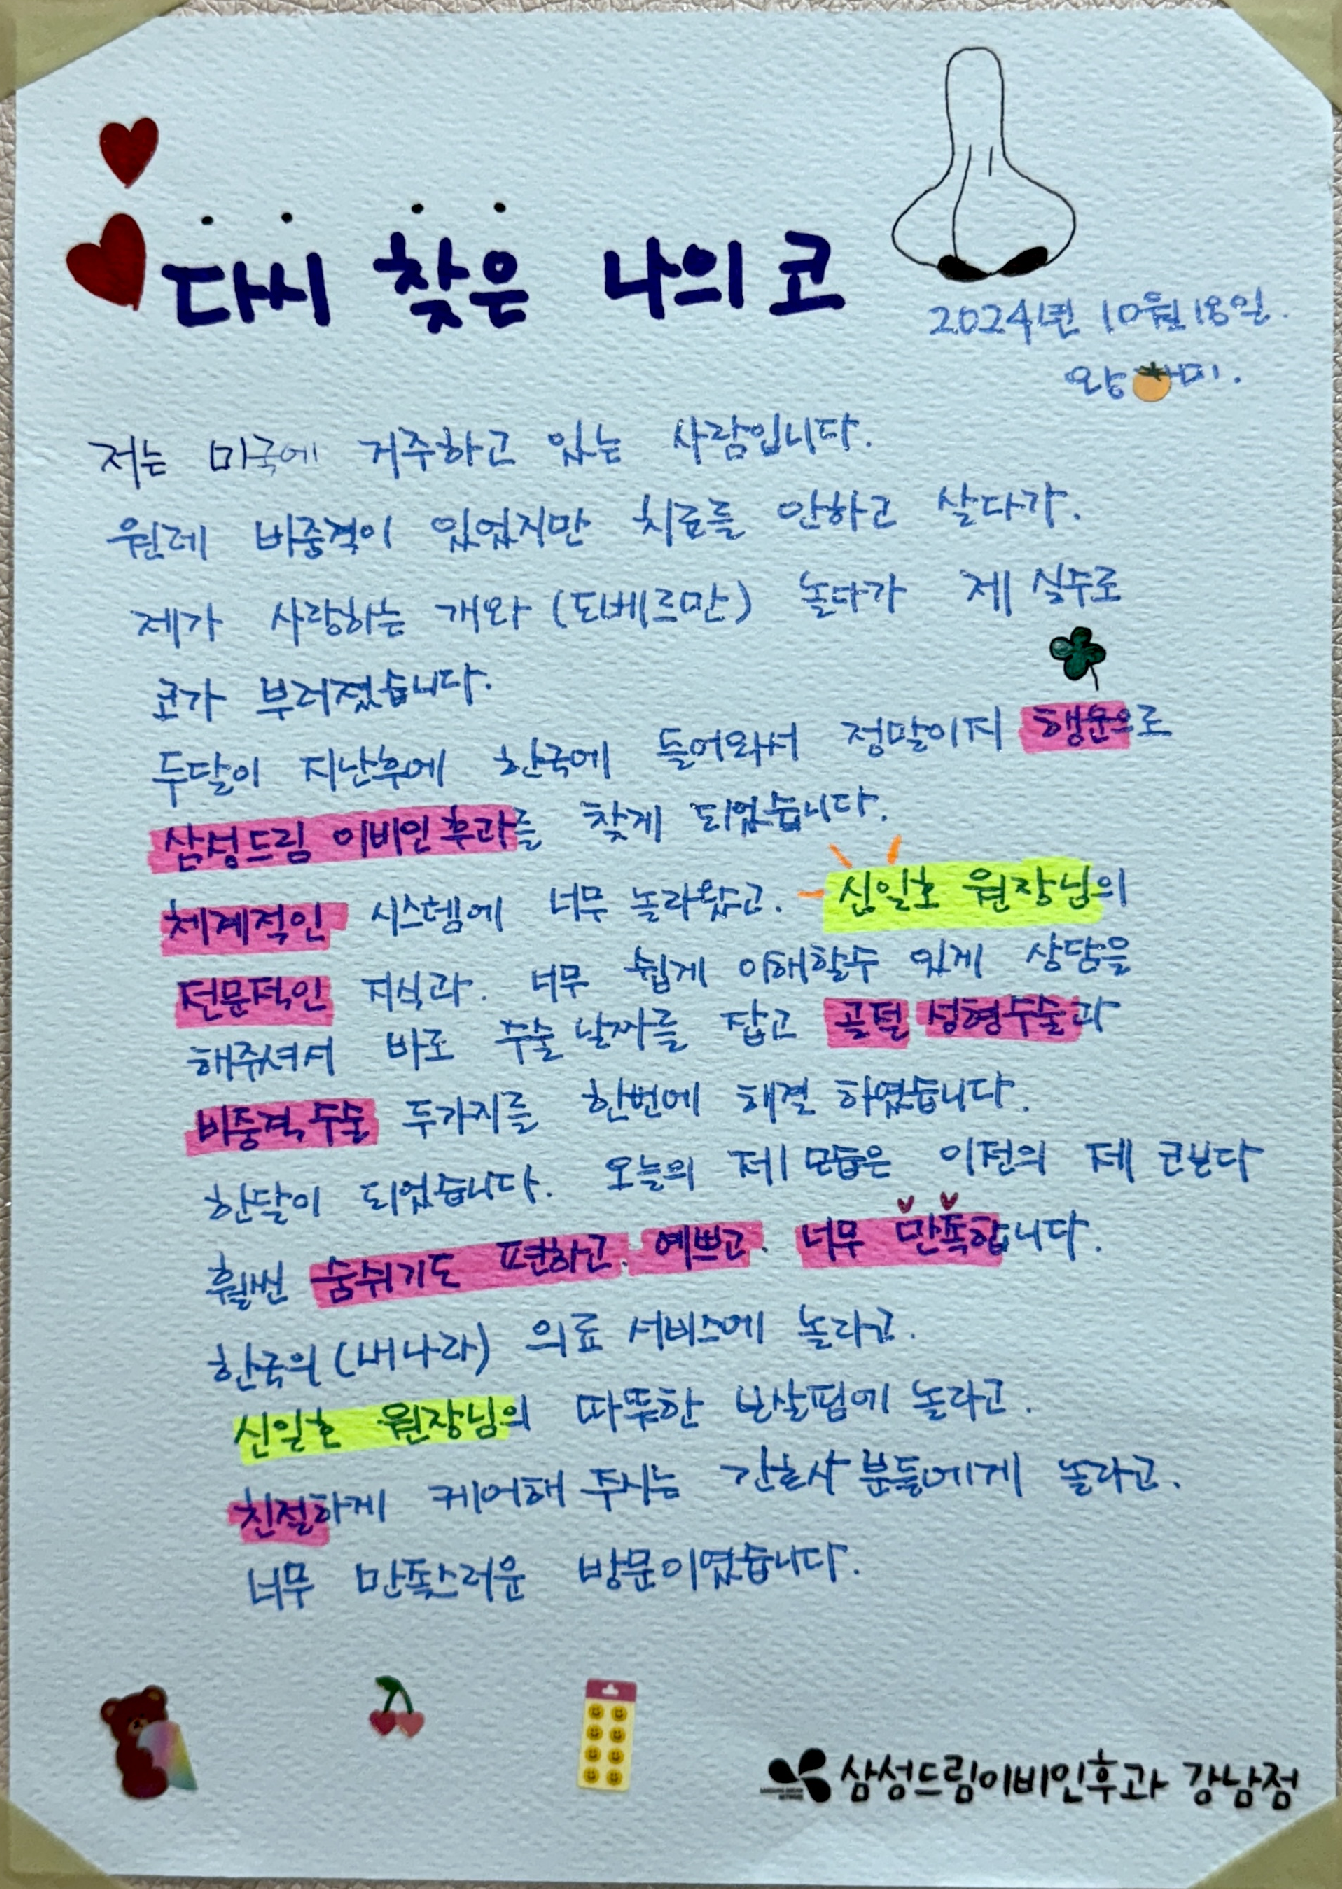 다시 찾은 나의 코
2024년 10월 18일.
왕 미.
저는 미국에 거주하고 있는 사람입니다.
원레 비중격이 있었지만 치료를 안하고 살다가.
제가 사랑하는 개와 (도베르만) 놀다가 제 실수로
코가 부러졌습니다.
두달이 지난후에 한국에 들어와서 정말이지 행운으로
삼성드림 이비인후과를 찾게 되었습니다.
체계적인 시스템에 너무 놀라왔고. 신일호 원장님의
전문적인 지식과. 너무 쉽게 이해할수 있게 상담을
해주셔서 바로 수술 날짜를 잡고 골절 성형수술과
비중격수술 두가지를 한번에 해결 하였습니다.
한달이 되었습니다. 오늘의 제 모습은 이전의 제 코보다
훨씬 숨쉬기도 편하고. 예쁘고. 너무 만족합니다.
한국의 (내나라) 의료 서비스에 놀라고.
신일호 원장님의 따뜻한 보살핌에 놀라고.
친절하게 케어해 주시는 간호사 분들에게 놀라고.
너무 만족스러운 방문이였습니다.
삼성드림이비인후과 강남점